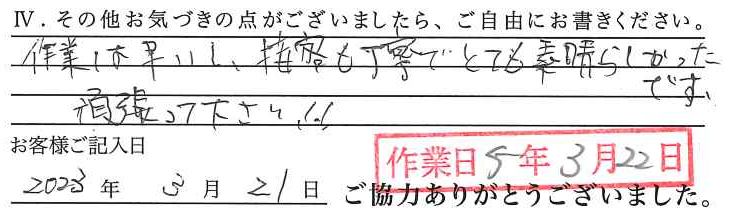 Ⅳ．その他お気づきの点がございましたら、ご自由にお書きください。
作業は早いし、接客も丁寧でとても素晴らしかった
です。
頑張って下さい!!
お客様ご記入日
作業日 5年 3月 22日
2023 年 3 月 21 日 ご協力ありがとうございました。